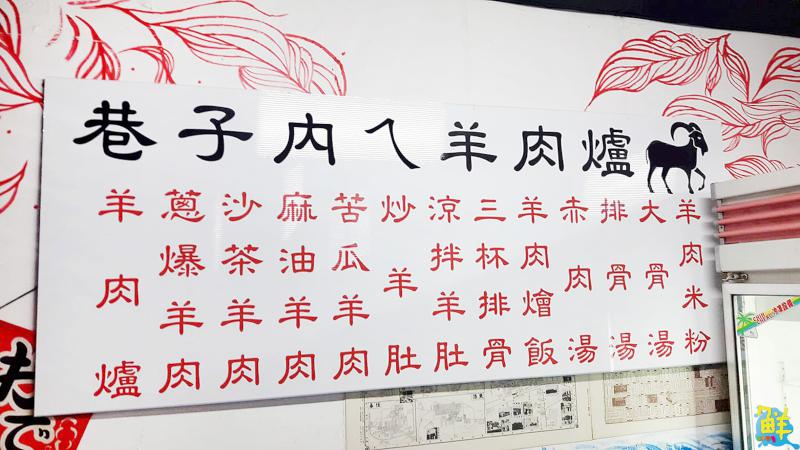 巷子內ㄟ羊肉爐
羊肉爐
蔥爆羊肉
沙茶羊肉
麻油羊肉
苦瓜羊肉
炒羊肚
涼拌羊肚
三杯排骨
羊肉燴飯
赤肉湯
排骨湯
大骨湯
羊肉米粉
鮮